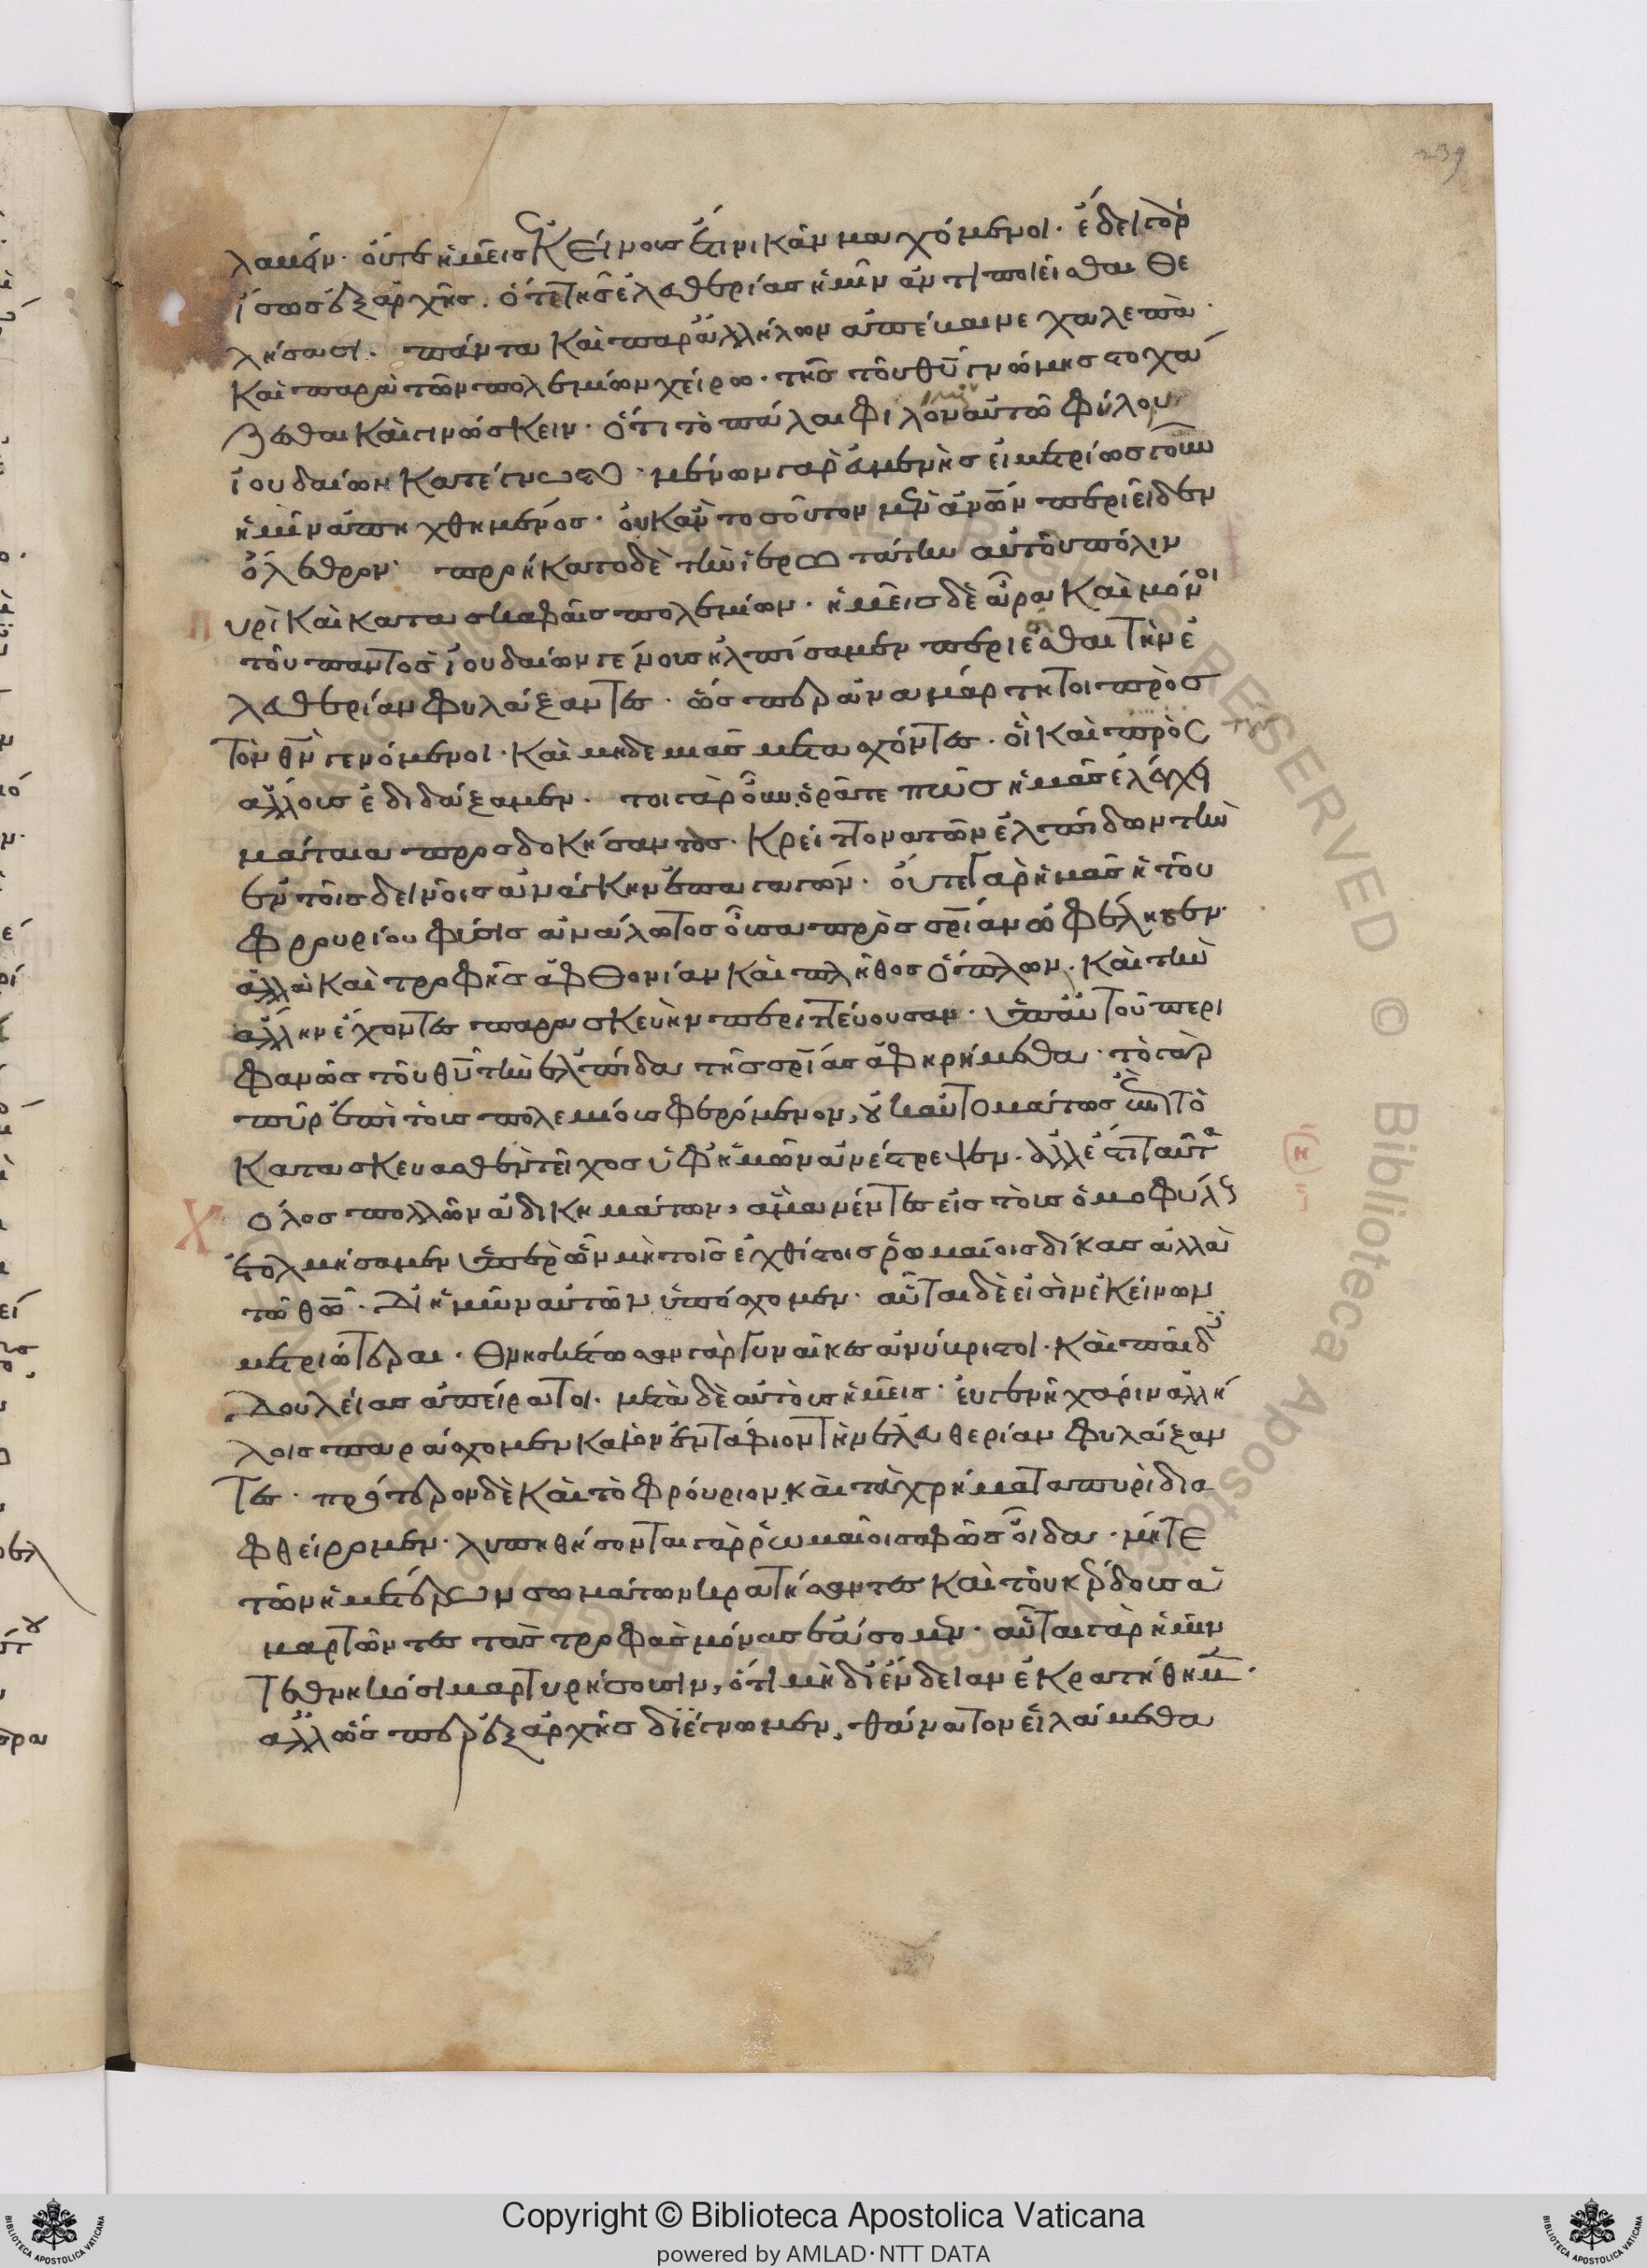 239
λαμεν· οὔτε ἡμεῖς ἐκείνους ἔτι νικᾶν μαχόμενοι· ἔδει γὰρ
ἴσως ἐξ ἀρχῆς. ὅτε τῆς ἐλευθερίας ἡμῖν ἀντιποιεῖσθαι θε
λήσασι. πάντα καὶ παρ' ἀλλήλων ἀπέβαινε χαλεπὰ·
καὶ παρὰ τῶν πολεμίων χείρω· τῆς τοῦ θῡ γνώμης στοχά
ζεσθαι καὶ γινώσκειν· ὅτι τὸ πάλαι φίλον αὐτῶ φύλον
ἰουδαίων κατέγνωστο· μένων γὰρ εὐμενὴς εἰ μετρίως γοῦν
ἡμῖν ἀπηχθημένος· οὐκ ἂν τοσούτων μὲν ἀνων περιεῖδεν
ὄλεθρον· προήκατο δὲ τὴν ἱερωτάτην αὐτοῦ πόλιν
πυρὶ καὶ κατασκαφαῖς πολεμίων· ἡμεῖς δὲ ἄρα καὶ μόνοι
τοῦ παντὸς ἰουδαίων γένους ἠλπίσαμεν περιέσεσθαι τὴν ἐ
λευθερίαν φυλάξαντες· ὥσπερ ἀναμάρτητοι πρὸς
τὸν θν γενόμενοι· καὶ μηδεμιᾶς μετασχόντες· οἳ καὶ πρὸς
ἄλλους ἐδιδάξαμεν· τοιγαροῦν ὁρᾶτε πῶς ἡμᾶς ἐλέγχει
μάταια προσδοκήσαντας· κρείττονα τῶν ἐλπίδων τὴν
ἐν τοῖς δεινοῖς ἀνάγκην ἐπαγαγών· οὔτε γὰρ ἡμᾶς ἡ τοῦ
φρουρίου φύσις ἀνάλωτος οὖσα πρὸς σρίαν ὠφέληκεν·
ἀλλὰ καὶ τροφῆς ἀφθονίαν καὶ πλῆθος ὅπλων· καὶ τὴν
ἄλλην ἔχοντες παρασκευὴν περιττεύουσαν· ὑπ' αὐτοῦ περι
φανῶς τοῦ θῡ τὴν ἐλπίδα τῆς σρίας ἀφῃρήμεθα· τὸ γὰρ
πῦρ ἐπὶ τοὺς πολεμίους φερόμενον, οὐκ αὐτομάτως ἐπὶ τὸ
κατασκευασθὲν τεῖχος ὑφ' ἡμῶν ἀνέτρεψεν· ἀλλ' ἔστι ταῦτα
χόλος πολλῶν ἀδικημάτων, ἃ μανέντες εἰς τοὺς ὁμοφύλους
ἐτολμήσαμεν ὑπὲρ ὧν μὴ τοῖς ἐχθίστοις ῥωμαίοις δίκας ἀλλὰ
τῶ θῶ· δι' ἡμῶν αὐτῶν ὑπόσχομεν· αὗται δὲ εἰσὶν ἐκείνων
μετριώτεραι· θνησκέτωσαν γὰρ γυναῖκες ἀνύβριστοι· καὶ παῖδες
δουλείας ἀπείρατοι· μετὰ δὲ αὐτοὺς ἡμεῖς· εὐγενῆ χάριν ἀλλή
λοις παράσχομεν καλὸν ἐντάφιον τὴν ἐλευθερίαν φυλάξαν
τες· πρότερον δὲ καὶ τὸ φρούριον καὶ τὰ χρήματα πυρὶ δια
φθείρομεν· λυπηθήσονται γὰρ ῥωμαῖοι σαφῶς οἶδα· μήτε
τῶν ἡμετέρων σωμάτων κρατήσαντες καὶ τοῦ κέρδους ἁ
μαρτῶντες τὰς τροφὰς μόνας ἐάσομεν· αὗται γὰρ ἡμῖν
τεθνηκόσι μαρτυρήσουσιν, ὅτι μὴ δι' ἔνδειαν ἐκρατήθημεν·
ἀλλ' ὥσπερ ἐξ ἀρχῆς διέγνωμεν, θάνατον εἱλάμεθα
Copyright © Biblioteca Apostolica Vaticana
powered by AMLAD·NTT DATA